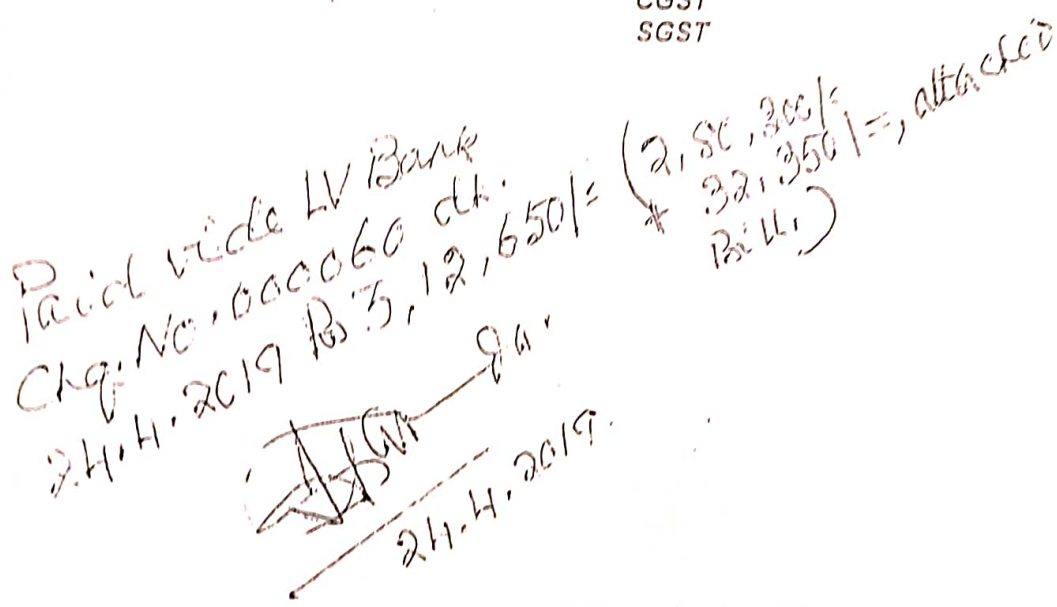 CGST
SGST
Paid vide LV Bank
Chq. No. 000060 dt.
24.4.2019 Rs 3,12,650/= (2,80,300/=
+ 32,350/=, attached
Bill.)
24.4.2019.